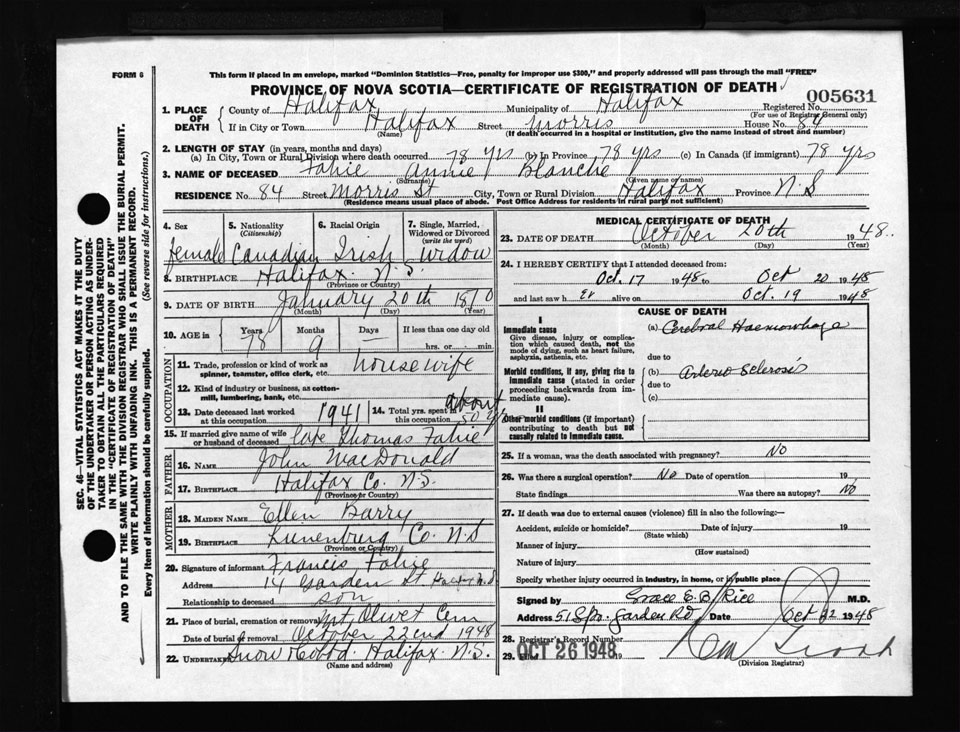 FORM 6
This form if placed in an envelope, marked "Dominion Statistics—Free, penalty for improper use $300," and properly addressed will pass through the mail "FREE"
PROVINCE OF NOVA SCOTIA—CERTIFICATE OF REGISTRATION OF DEATH
005631
1. PLACE OF DEATH
County of Halifax Municipality of Halifax Registered No.
(For use of Registrar General only)
If in City or Town Halifax Street Morris House No. 84
(Name) (If death occurred in a hospital or institution, give the name instead of street and number)
2. LENGTH OF STAY (in years, months and days)
(a) In City, Town or Rural Division where death occurred 78 yrs (b) In Province 78 yrs (c) In Canada (if immigrant) 78 yrs
3. NAME OF DECEASED Fahie Annie Blanche
(Surname) (Given name or names)
RESIDENCE No. 84 Street Morris St City, Town or Rural Division Halifax Province N.S
(Residence means usual place of abode. Post Office Address for residents in rural parts not sufficient)
4. Sex female
5. Nationality (Citizenship) Canadian
6. Racial Origin Irish
7. Single, Married, Widowed or Divorced (write the word) Widow
8. BIRTHPLACE Halifax N.S.
(Province or Country)
9. DATE OF BIRTH January 20th 1870
(Month) (Day) (Year)
10. AGE in Years Months Days If less than one day old
78 9 — hrs. or min.
OCCUPATION
11. Trade, profession or kind of work as spinner, teamster, office clerk, etc. housewife
12. Kind of industry or business, as cotton-mill, lumbering, bank, etc.
13. Date deceased last worked at this occupation 1941
14. Total yrs. spent in this occupation about 50 yrs
15. If married give name of wife or husband of deceased Capt Thomas Fahie
FATHER
16. NAME John MacDonald
17. BIRTHPLACE Halifax Co. N.S.
(Province or Country)
MOTHER
18. MAIDEN NAME Ellen Barry
19. BIRTHPLACE Lunenburg Co. N.S
(Province or Country)
20. Signature of informant Francis Fahie
Address 14 Garden St Halifax N.S.
Relationship to deceased son
21. Place of burial, cremation or removal Mt Olivet Cem
Date of burial or removal October 22nd 1948
22. UNDERTAKER Snow & Co Ltd. Halifax N.S.
(Name and address)
MEDICAL CERTIFICATE OF DEATH
23. DATE OF DEATH October 20th 1948
(Month) (Day) (Year)
24. I HEREBY CERTIFY that I attended deceased from:
Oct. 17 1948 to Oct 20 1948
and last saw h er alive on Oct. 19 1948
CAUSE OF DEATH
I
Immediate cause
Give disease, injury or complication which caused death, not the mode of dying, such as heart failure, asphyxia, asthenia, etc.
(a) Cerebral Haemorrhage
due to
Morbid conditions, if any, giving rise to immediate cause (stated in order proceeding backwards from immediate cause).
(b) Arterio Sclerosis
due to
(c)
II
Other morbid conditions (if important) contributing to death but not causally related to immediate cause.
25. If a woman, was the death associated with pregnancy? No
26. Was there a surgical operation? No Date of operation 19
State findings Was there an autopsy? No
27. If death was due to external causes (violence) fill in also the following:—
Accident, suicide or homicide? Date of injury 19
(State which)
Manner of injury
(How sustained)
Nature of injury
Specify whether injury occurred in industry, in home, or in public place
Signed by Grace E. B. Rice M.D.
Address 51 Spg. Garden Rd Date Oct 22 1948
28. Registrar's Record Number
29. OCT 26 1948 19
(Division Registrar)
SEC. 46—VITAL STATISTICS ACT MAKES IT THE DUTY OF THE UNDERTAKER OR PERSON ACTING AS UNDERTAKER TO OBTAIN ALL THE PARTICULARS REQUIRED IN THE "CERTIFICATE OF REGISTRATION OF DEATH" AND TO FILE THE SAME WITH THE DIVISION REGISTRAR WHO SHALL ISSUE THE BURIAL PERMIT.
WRITE PLAINLY WITH UNFADING INK. THIS IS A PERMANENT RECORD.
Every item of information should be carefully supplied. (See reverse side for instructions.)